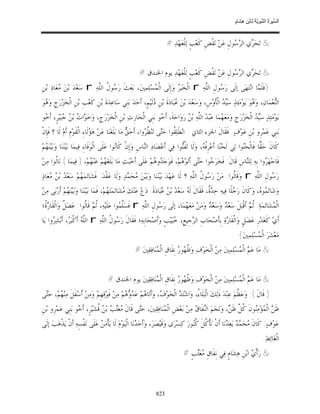 السِّيرَةُ النَّبَوِيَّةُ لِابْنِ هِشَامٍ
& تَحَرِّي الرَّسُولِ عَنْ نَقْضِ كَعْبٍ لِلْعَهْدِ #
& تَحَرِّي الرَّسُولِ عَنْ نَقْضِ كَعْبٍ لِلْعَهْدِ يوم الخندق #
(فَلَمَّا انْتَهَى إلَى رَسُولِ اللَّهِ r الْخَبَرُ وَإِلَى الْمُسْلِمِينَ، بَعَثَ رَسُولُ اللَّهِ r سَعْدَ بْنَ مُعَاذِ بْنِ
النُّعْمَانِ، وَهُوَ يَوْمَئِذٍ سَيِّدُ الْأَوْسِ، وَسَعْدَ بْنَ عُبَادَةَ بْنِ دُلَيْمٍ، أَحَدَ بَنِي سَاعِدَةَ بْنِ كَعْبِ بْنِ الْخَزْرَجِ وَهُوَ
يَوْمَئِذٍ سَيِّدُ الْخَزْرَجِ وَمَعَهُمَا عَبْدُ اللَّهِ بْنُ رَوَاحَةَ، أَخُو بَنِي الْحَارِثِ بْنِ الْخَزْرَجِ، وَخَوَّاتُ بْنُ جُبَيْرٍ، أَخُو
بَنِي عَمْرِو بْنِ عَوْفٍ فَقَالَ الجزء الثاني انْطَلِقُوا حَتَّى تَنْظُرُوا، أَحَقٌّ مَا بَلَغَنَا عَنْ هَؤُلَاءِ الْقَوْمِ أَمْ لَا ؟ فَإِنْ
كَانَ حَقًّا فَالْحَنُوا لِي لَحْنًا أَعْرِفُهُ، وَلَا تَفُتُّوا فِي أَعْضَادِ النَّاسِ وَإِنْ كَانُوا عَلَى الْوَفَاءِ فِيمَا بَيْنَنَا وَبَيْنَهُمْ
فَاجْهَرُوا بِهِ لِلنَّاسِ قَالَ فَخَرَجُوا حَتَّى أَتَوْهُمْ، فَوَجَدُوهُمْ عَلَى أَخْبَثِ مَا بَلَغَهُمْ عَنْهُمْ، ( فِيمَا ) نَالُوا مِنْ
رَسُولِ اللَّهِ r وَقَالُوا مَنْ رَسُولُ اللَّهِ ؟ لَا عَهْدَ بَيْنَنَا وَبَيْنَ مُحَمَّدٍ وَلَا عَقْدَ فَشَاتَمَهُمْ سَعْدُ بْنُ مُعَاذٍ
وَشَاتَمُوهُ، وَكَانَ رَجُلًا فِيهِ حِدَّةٌ، فَقَالَ لَهُ سَعْدُ بْنُ عُبَادَةَ دَعْ عَنْكَ مُشَاتَمَتَهُمْ، فَمَا بَيْنَنَا وَبَيْنَهُمْ أَرْبَى مِنْ
الْمُشَاتَمَةِ ثُمَّ أَقْبَلَ سَعْدٌ وَسَعْدٌ وَمَنْ مَعَهُمَا، إلَى رَسُولِ اللَّهِ r فَسَلَّمُوا عَلَيْهِ، ثُمَّ قَالُوا عَضَلٌ وَالْقَارَةُ؛
أَيْ كَغَدْرِ عَضَلٍ وَالْقَارَةِ بِأَصْحَابِ الرَّجِيعِ، خُبَيْبٍ وَأَصْحَابِهِ؛ فَقَالَ رَسُولُ اللَّهِ r اللَّهُ أَكْبَرُ، أَبْشِرُوا يَا
مَعْشَرَ الْمُسْلِمِينَ)
& مَا عَمَّ الْمُسْلِمِينَ مِنْ الْخَوْفِ وَظُهُورُ نِفَاقِ الْمُنَافِقِينَ #
& مَا عَمَّ الْمُسْلِمِينَ مِنْ الْخَوْفِ وَظُهُورُ نِفَاقِ الْمُنَافِقِينَ يوم الخندق #
( قَالَ ) وَعَظُمَ عِنْدَ ذَلِكَ الْبَلَاءُ، وَاشْتَدَّ الْخَوْفُ، وَأَتَاهُمْ عَدُوُّهُمْ مِنْ فَوْقِهِمْ وَمِنْ أَسْفَلَ مِنْهُمْ، حَتَّى
ظَنَّ الْمُؤْمِنُونَ كُلَّ ظَنٍّ، وَنَجَمَ النِّفَاقُ مِنْ بَعْضِ الْمُنَافِقِينَ، حَتَّى قَالَ مُعَتِّبُ بْنُ قُشَيْرٍ، أَخُو بَنِي عَمْرِو بْنِ
عَوْفٍ كَانَ مُحَمَّدٌ يَعِدُنَا أَنْ نَأْكُلَ كُنُوزَ كِسْرَى وَقَيْصَرَ، وَأَحَدُنَا الْيَوْمَ لَا يَأْمَنُ عَلَى نَفْسِهِ أَنْ يَذْهَبَ إلَى
الْغَائِطِ
& رَأْيُ ابْنِ هِشَامٍ فِي نِفَاقِ مُعَتِّبٍ #
823